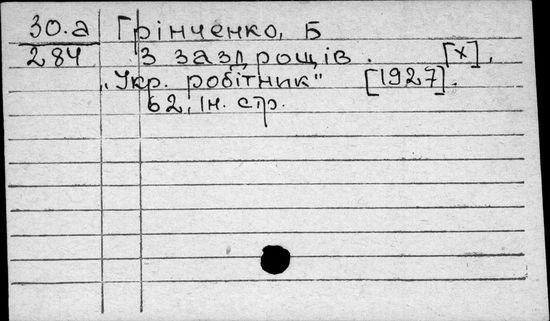 30.а Грінченко, Б
284 З заздрощів. [х],
„Укр. робітник" [1927].
62, Ін. стр.